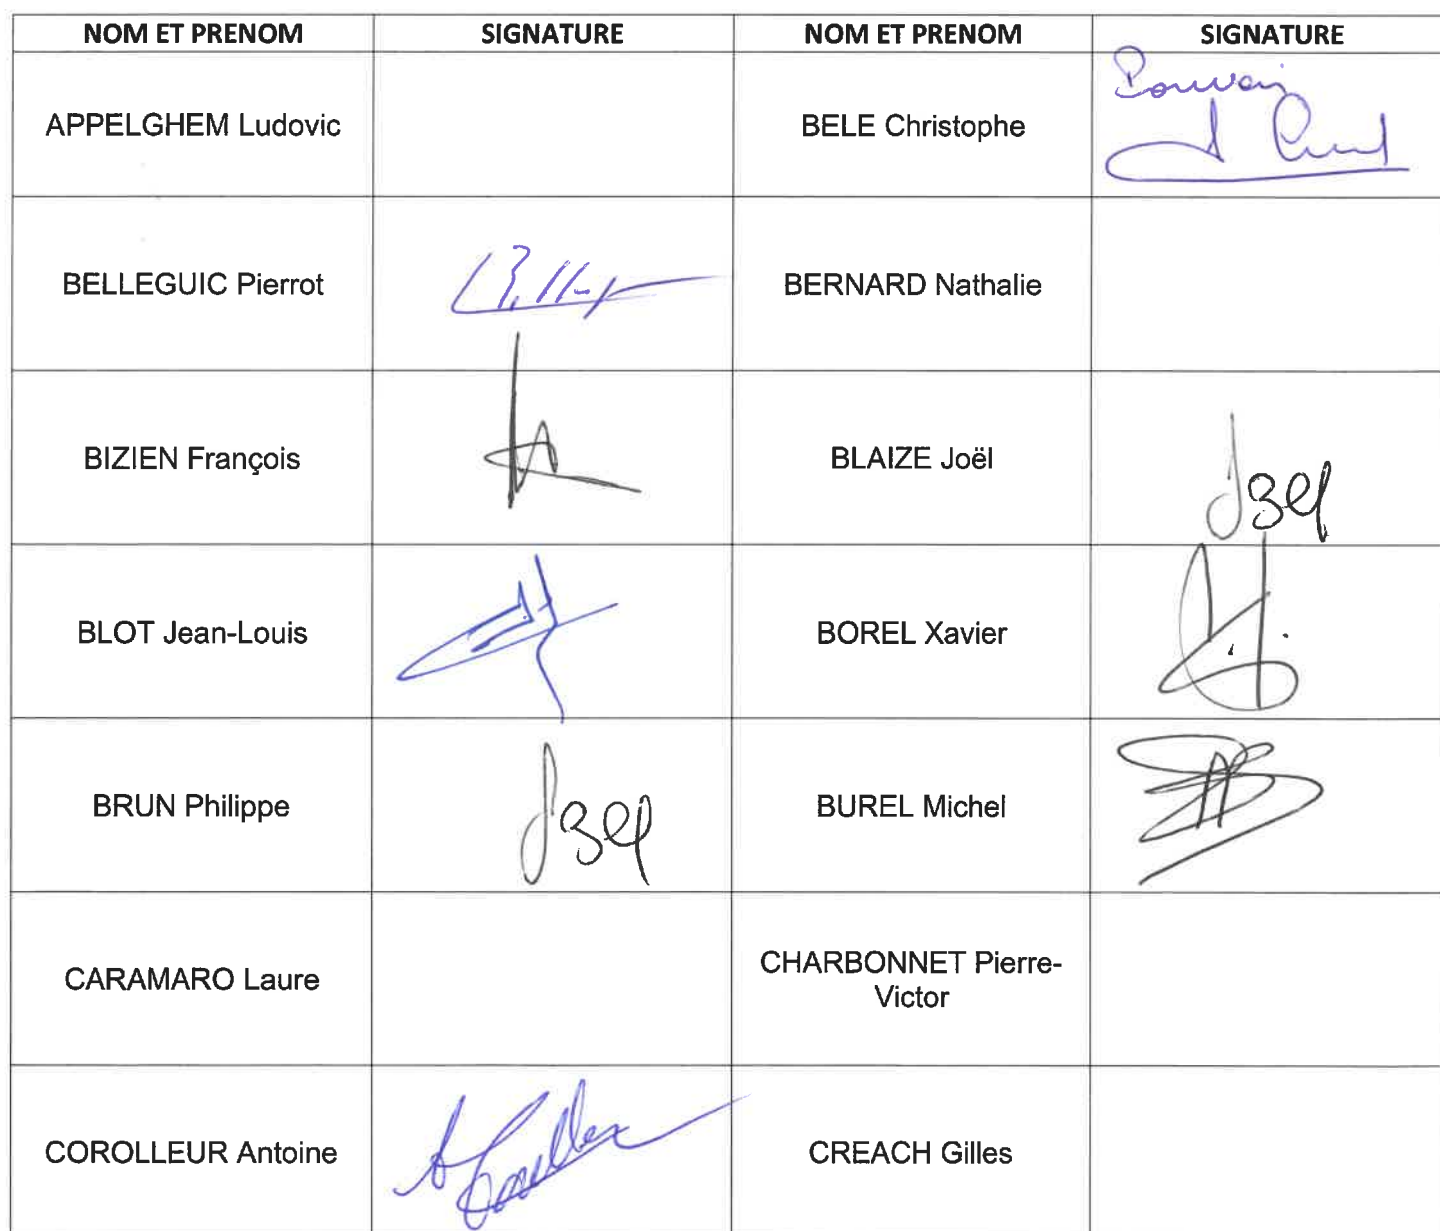 NOM ET PRENOM SIGNATURE NOM ET PRENOM SIGNATURE
APPELGHEM Ludovic BELE Christophe Pouvoir
BELLEGUIC Pierrot BERNARD Nathalie
BIZIEN François BLAIZE Joël
BLOT Jean-Louis BOREL Xavier
BRUN Philippe BUREL Michel
CARAMARO Laure CHARBONNET Pierre-
Victor
COROLLEUR Antoine CREACH Gilles